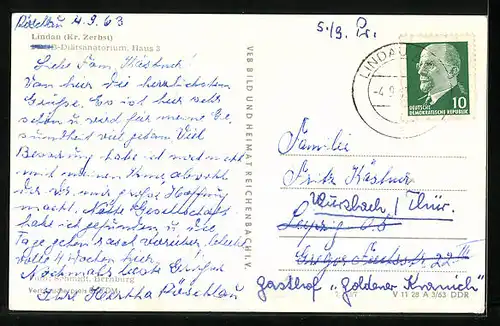 Pöschlau 4.9.63
5./9. Pr.
Lindau (Kr. Zerbst)
Diätsanatorium, Haus 2
Liebe Fam. Kästner!
Von hier die herzlichsten
Grüße. Es ist hier sehr
schön u. wird für meine Ge-
sundheit viel getan. Viel
Besserung habe ich noch nicht
mit meinen Knie, obwohl
der Arzt mir große Hoffnung
macht. Nette Gesellschaft
habe ich gefunden u. die
Tage gehen rasch vorüber. Bleibe
volle 4 Wochen hier.
Nochmals beste Grüße
Ihre Hertha Pöschlau
Schmidt, Bernburg
VEB BILD UND HEIMAT REICHENBACH I. V.
LINDAU
-4.9.
DEUTSCHE
DEMOKRATISCHE REPUBLIK
10
Familie
Fritz Kästner
Wursbach / Thür.
Leipzig
22 III
Gasthof "Goldener Kranich"
V 11 28 A 3/63 DDR